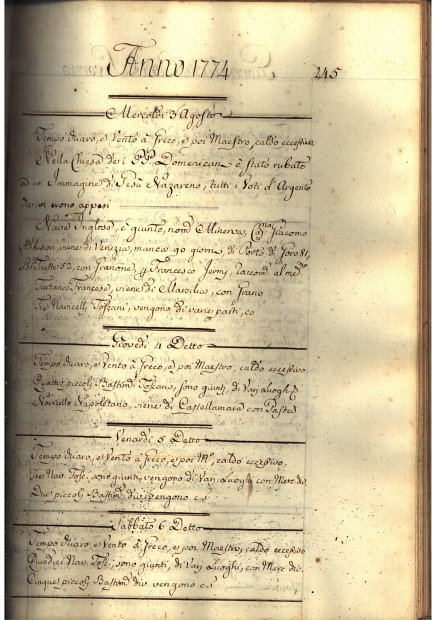 Anno 1774
245
Mercoldi 3 Agosto
Tempo chiaro, e Vento à Greco, e poi Maestro, caldo eccessivo
Nella Chiesa dei PP. Domenicani è stato rubato
ad un Immagine di Gesù Nazareno, tutti i Voti d'Argento
che vi erono appesi
Nave Inglese, è giunto, nomd Minerva, Capno Giacomo
viene di Venezia, manca 90 giorni, di Porto di Goro 81,
e di Trieste 52, con Granone, Francesco Jermy, raccomd al medmo
Tartana Francese, viene di Marsilia, con Grano
Tre Navicelli Toscani, vengono di varie parti, co
Giovedi 4 Detto
Tempo chiaro, e Vento à Greco, e poi Maestro, caldo eccessivo
Quattro piccoli Bastimdi Toscano, sono giunti, di Varj Luoghi
Navicello Napoletano, viene di Castellamare con Paste
Venardi 5 Detto
Tempo chiaro, e Vento à Greco, e poi Mo, caldo eccessivo.
Tre Navi Tosci, sono giunti, vengono di Varj Luoghi con Merc die
Due piccoli Bastimi, divsi vengono cs
Sabbato 6 Detto
Tempo chiaro, e Vento à Greco, e poi Maestro, caldo eccessivo
Quindici Navi Tosci, sono giunti, di Varj Luoghi, con Merc die
Cinque piccoli Bastimi div. vengono cs